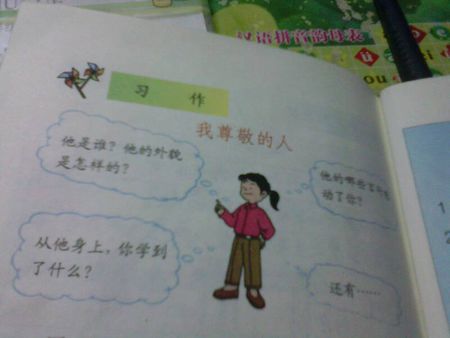 汉语拼音韵母表
ü
ou
习 作
我尊敬的人
他是谁?他的外貌
是怎样的?
他的哪些言行
动了你?
从他身上,你学到
了什么?
还有……
1